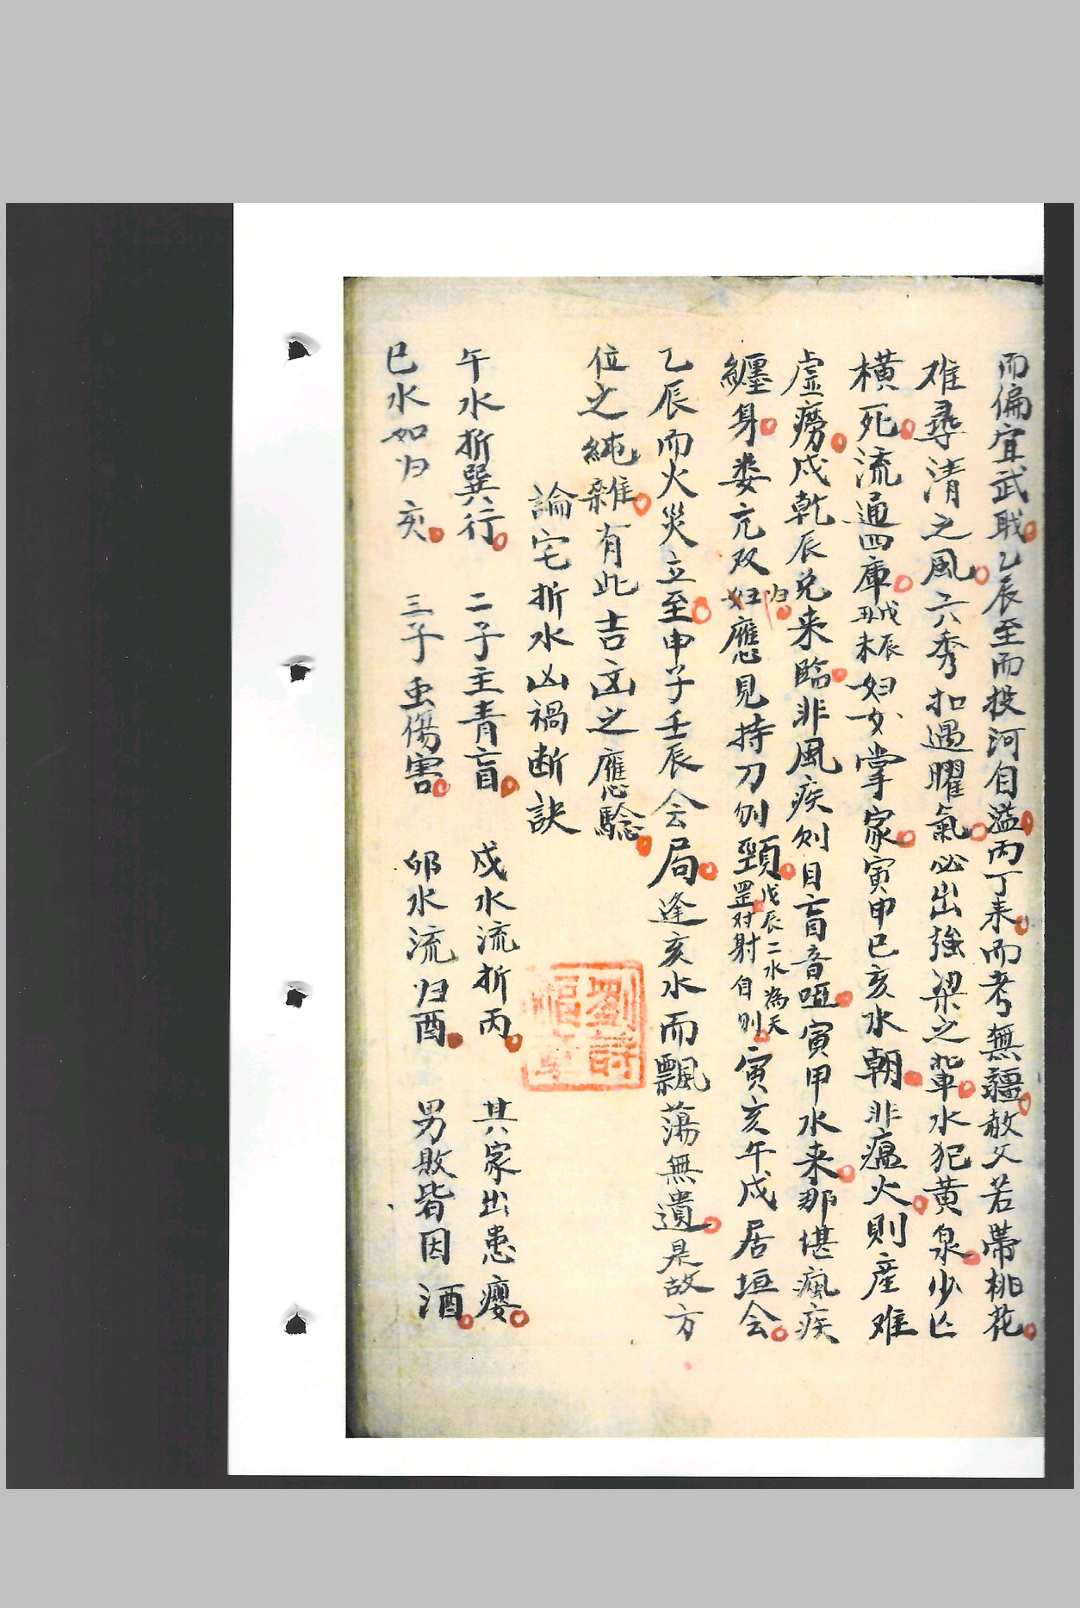 而偏宜武戢乙辰至而投河自溢丙丁来而考無疆赦文若帶桃花
难尋清之風六秀扣遇曜氣必出強梁之輩水犯黄泉少亡
横死流通四庫戍辰丑未妇女掌家寅申巳亥水朝非瘟火則産难
虚癆戍乾辰兑来臨非風疾则目盲音哑寅甲水来那堪瘋疾
纏身娄亢双妇归應見持刀刎頸戊辰二水為天罡对射自刎寅亥午戍居垣会
乙辰而火災立至申子壬辰会局逢亥水而飄蕩無遺是故方
位之純雜有此吉凶之應驗
論宅折水凶禍断訣
午水折巽行 二子主青盲 戍水流折丙 其家出患癭
巳水如归亥 三子虫傷害 卯水流归酉 男敗皆因酒
劉詩